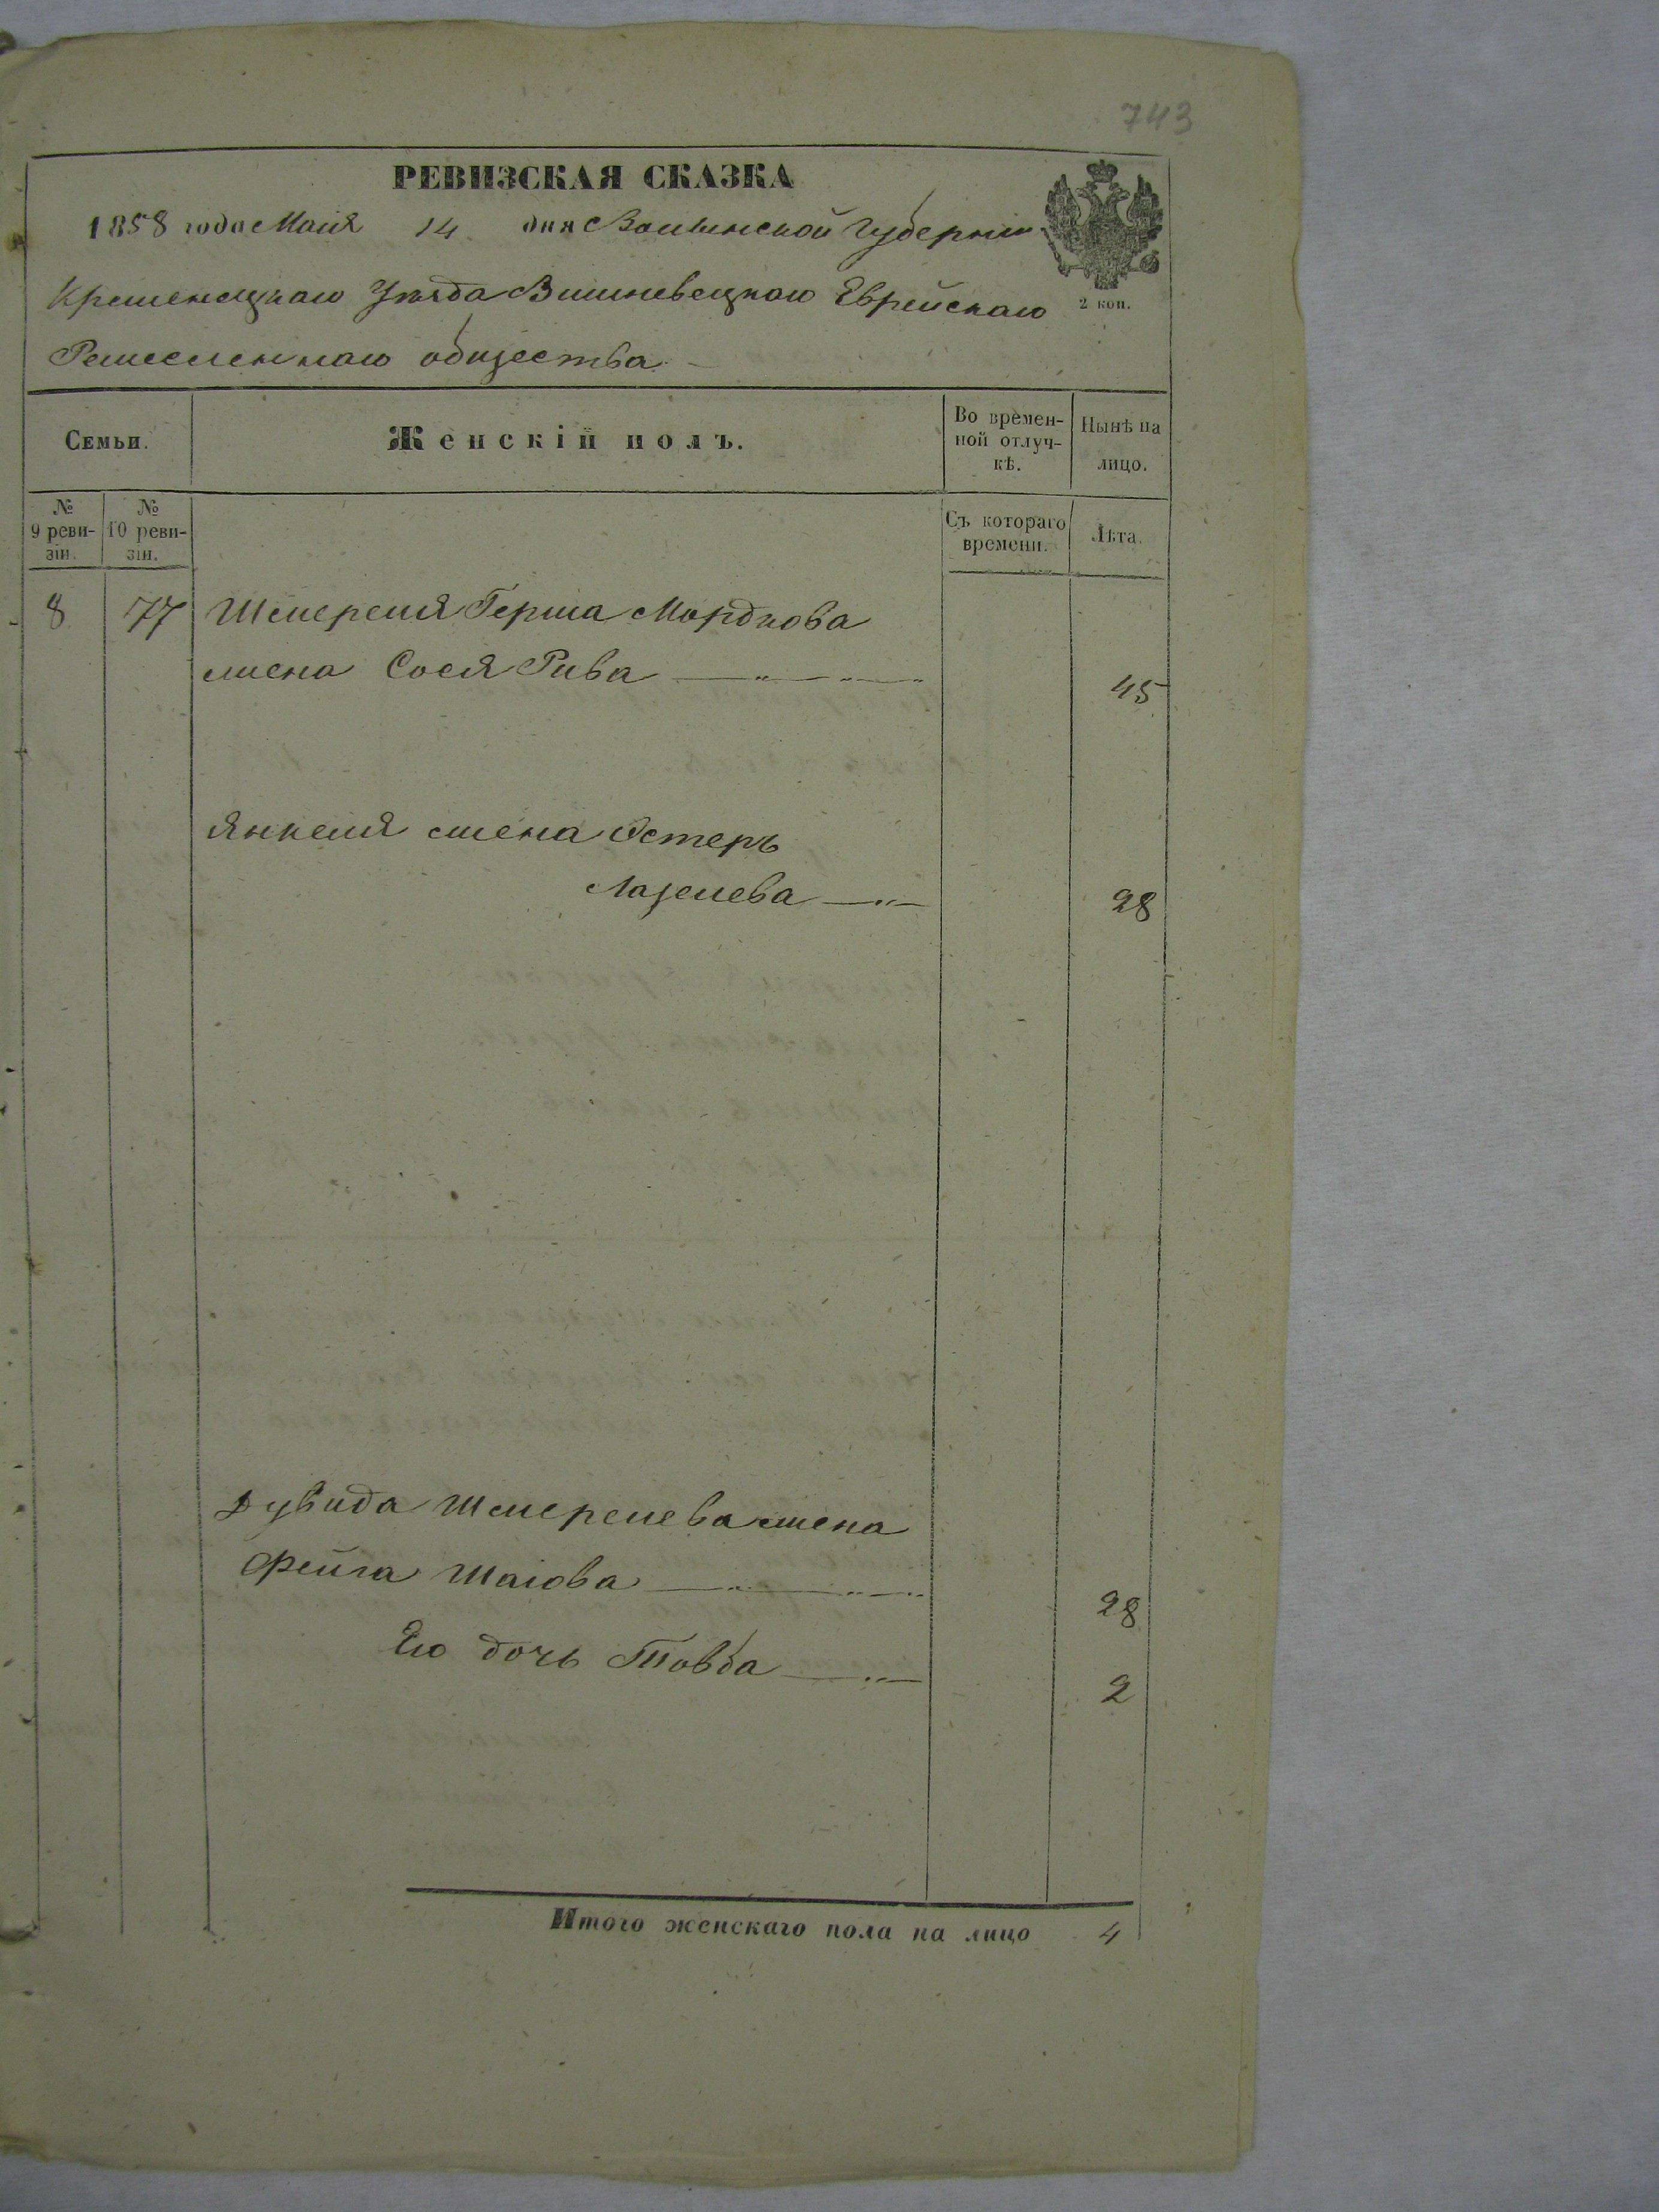 743
РЕВИЗСКАЯ СКАЗКА
1858 года Маія 14 дня Волынской Губерніи
Кременецкаго Уѣзда Вишневецкаго Еврейскаго
2 коп.
Ремесленнаго общества
Семьи.
Женскій полъ.
Во времен-
ной отлуч-
кѣ.
Нынѣ на
лицо.
№
9 реви-
зіи.
№
10 реви-
зіи.
Съ котораго
времени.
Лѣта.
8 77 Шмереля Герша Мордкова
жена Сося Рива 45
Янкеля жена Эстеръ
Лазелева 28
Дувида Шмерелева жена
Фейга Шаіова 28
Его дочь Товба 2
Итого женскаго пола на лицо 4